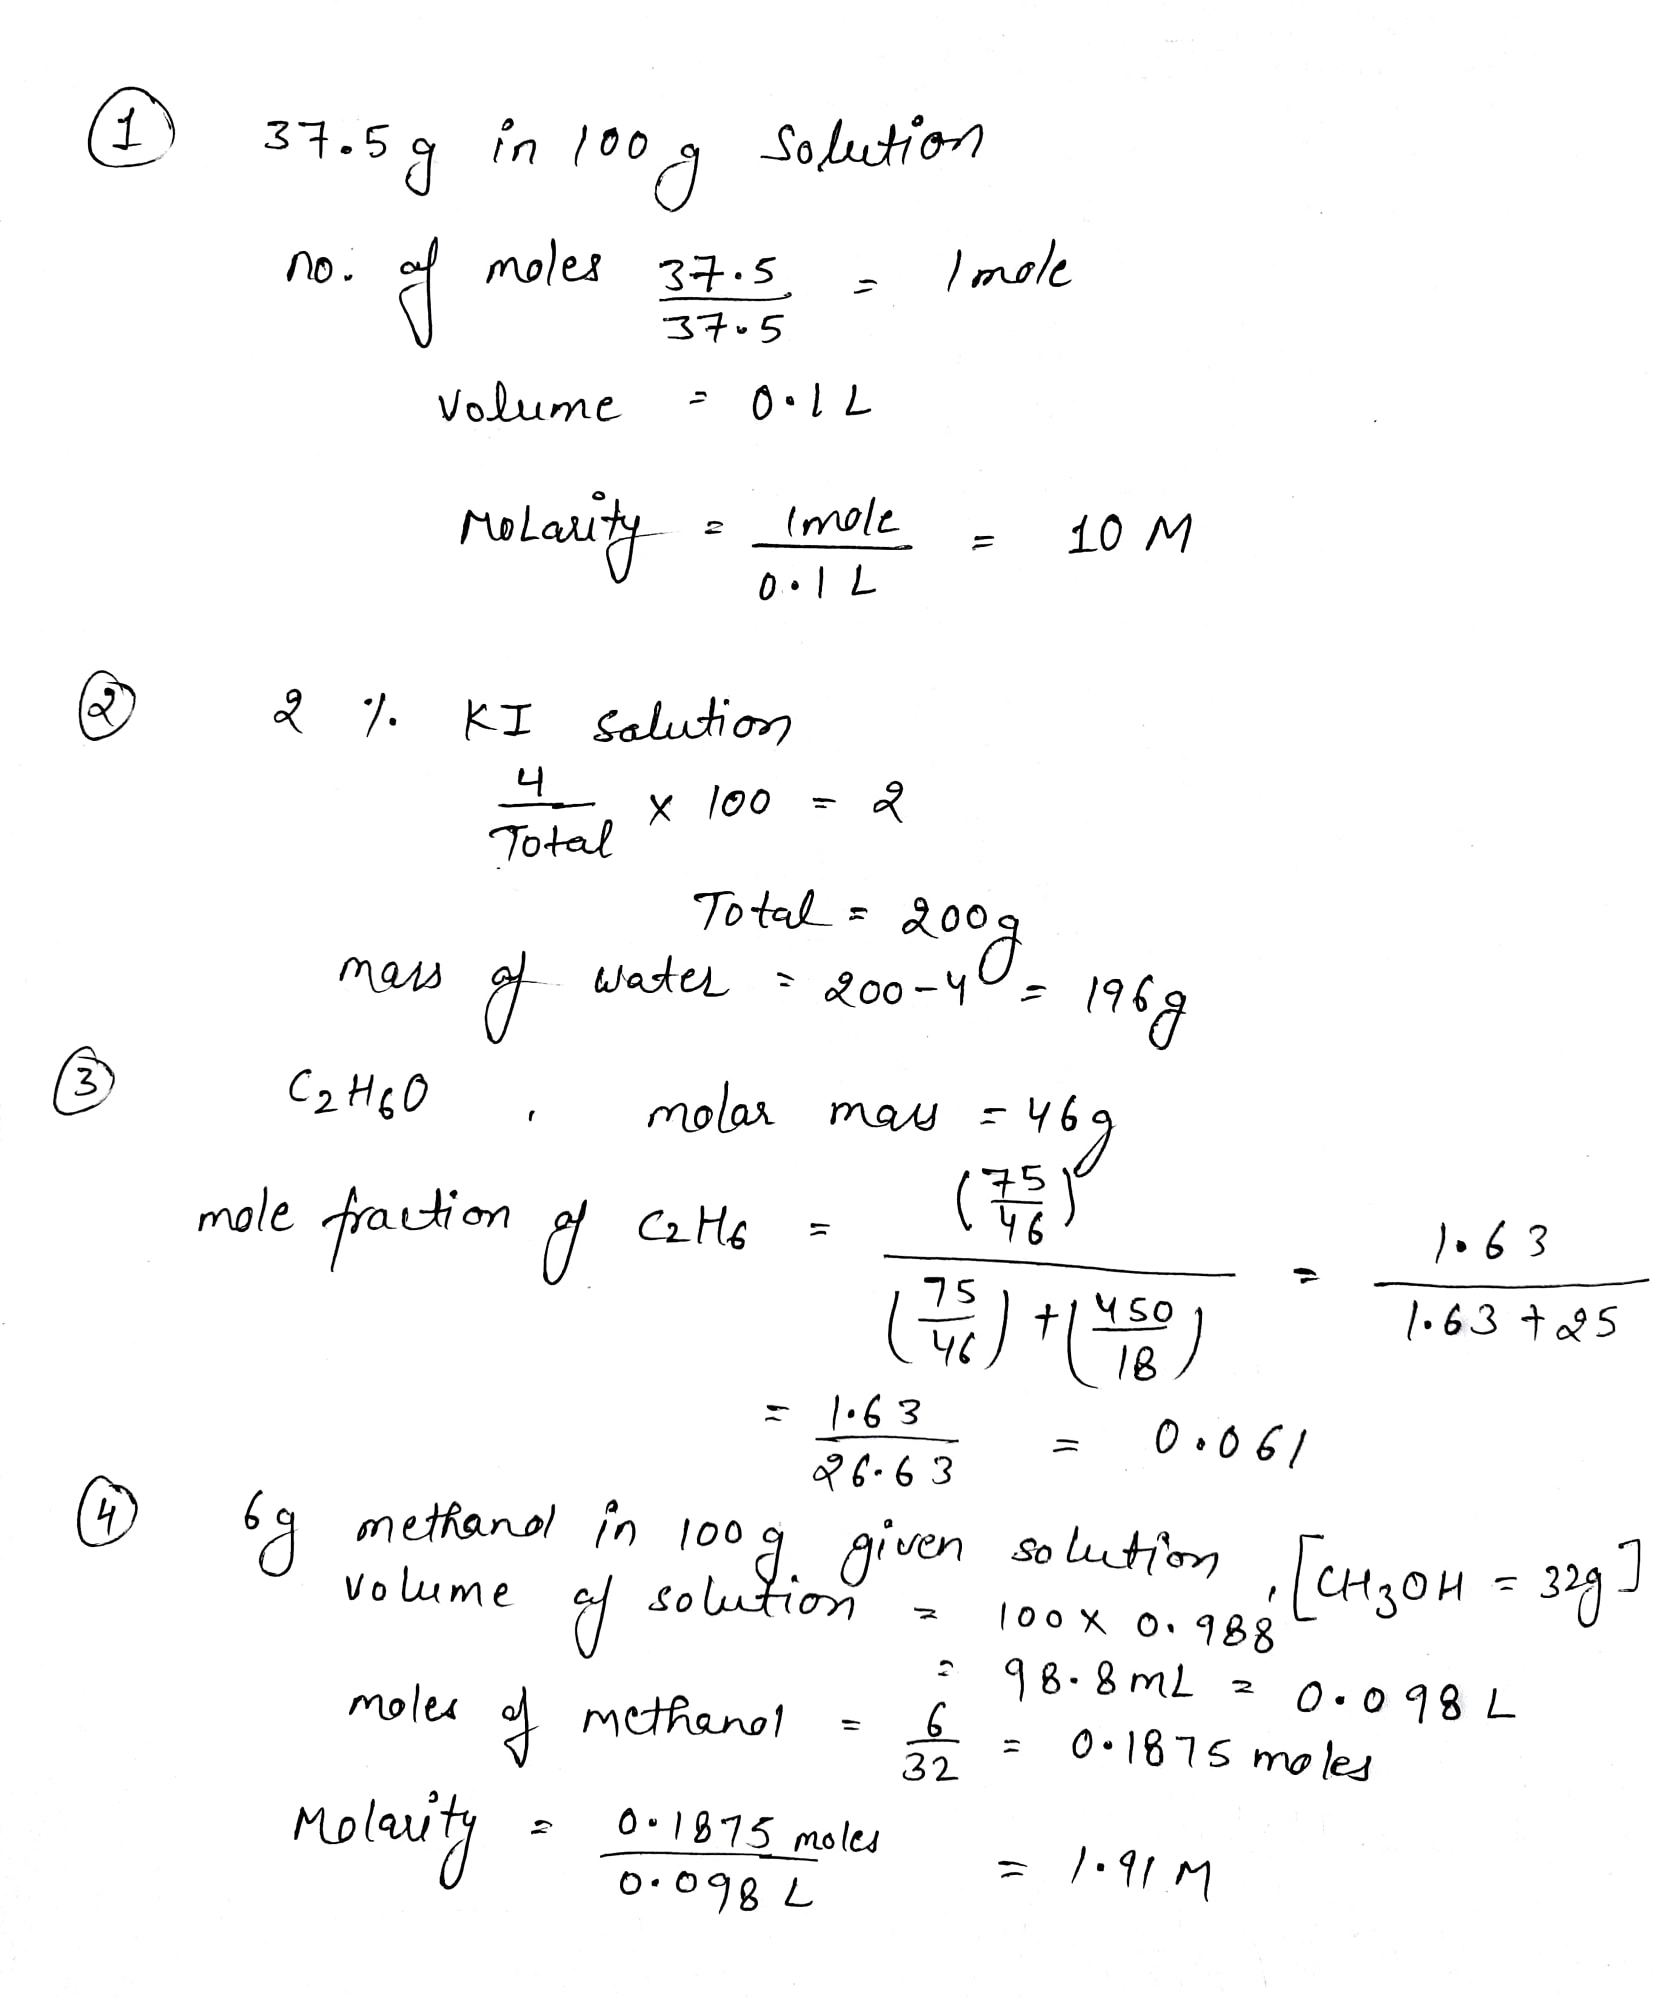 ① 37.5 g in 100 g Solution
no. of moles 37.5/37.5 = 1 mole
Volume = 0.1 L
Molarity = 1 mole/0.1 L = 10 M
② 2 % KI solution
4/Total × 100 = 2
Total = 200g
mass of water = 200-4 = 196g
③ C2H6O , molar mass = 46g
mole fraction of C2H6 = (75/46)/((75/46)+(450/18)) = 1.63/(1.63+25)
= 1.63/26.63 = 0.061
④ 6g methanol in 100g given solution, [CH3OH = 32g]
volume of solution = 100 × 0.988
= 98.8 mL = 0.098 L
moles of methanol = 6/32 = 0.1875 moles
Molarity = 0.1875 moles/0.098 L = 1.91 M